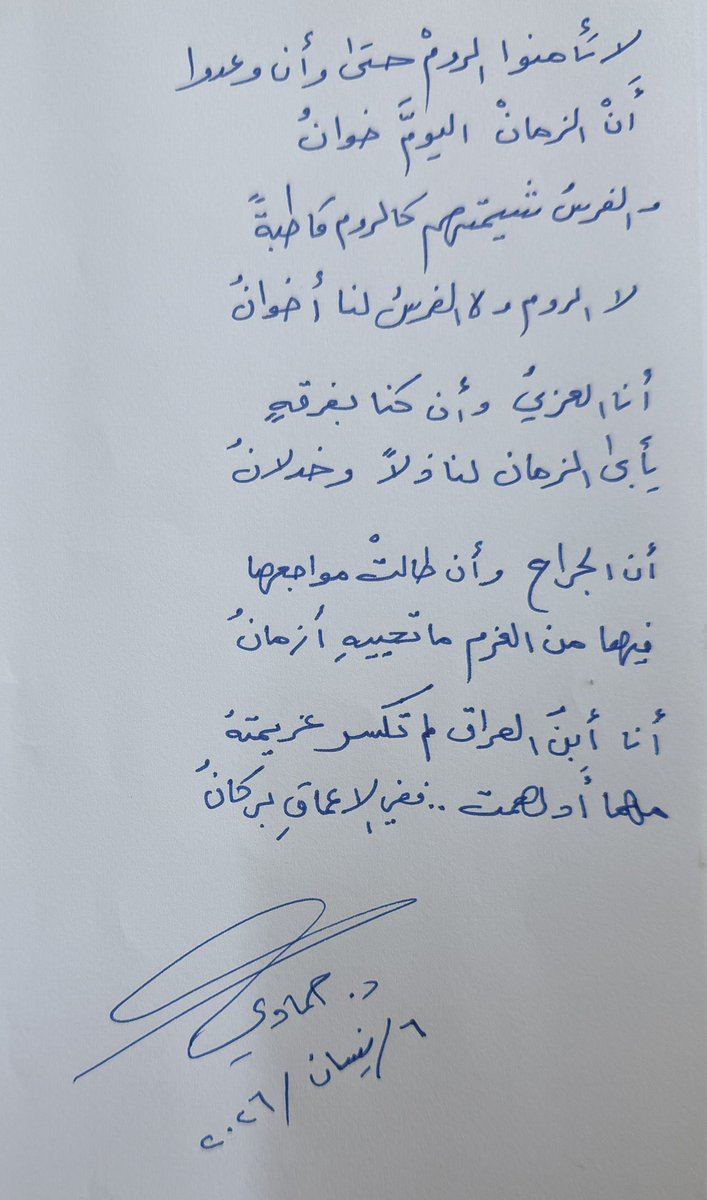 لا تأمنوا الرومْ حتىٰ وأن وعدوا
أَنْ الزمانْ اليومَّ خوانُ
والفرسُ شيمتهم كالروم قاطبةً
لا الروم ولا الفرسُ لنا أخوانُ
أنا العزيُ وأن كنا بفرقهٍ
يأبىٰ الزمان لنا ذلاً وخذلانُ
أن الجراح وأن طالتْ مواجعها
فيها من العزم ما تحييهِ أزمانُ
أنا أبنُ العراق لم تكسر عزيمتهُ
مهما أدلهمت .. ففي الاعماقِ بركانُ
د. حمادي
٦/نيسان/٢٠٢٦